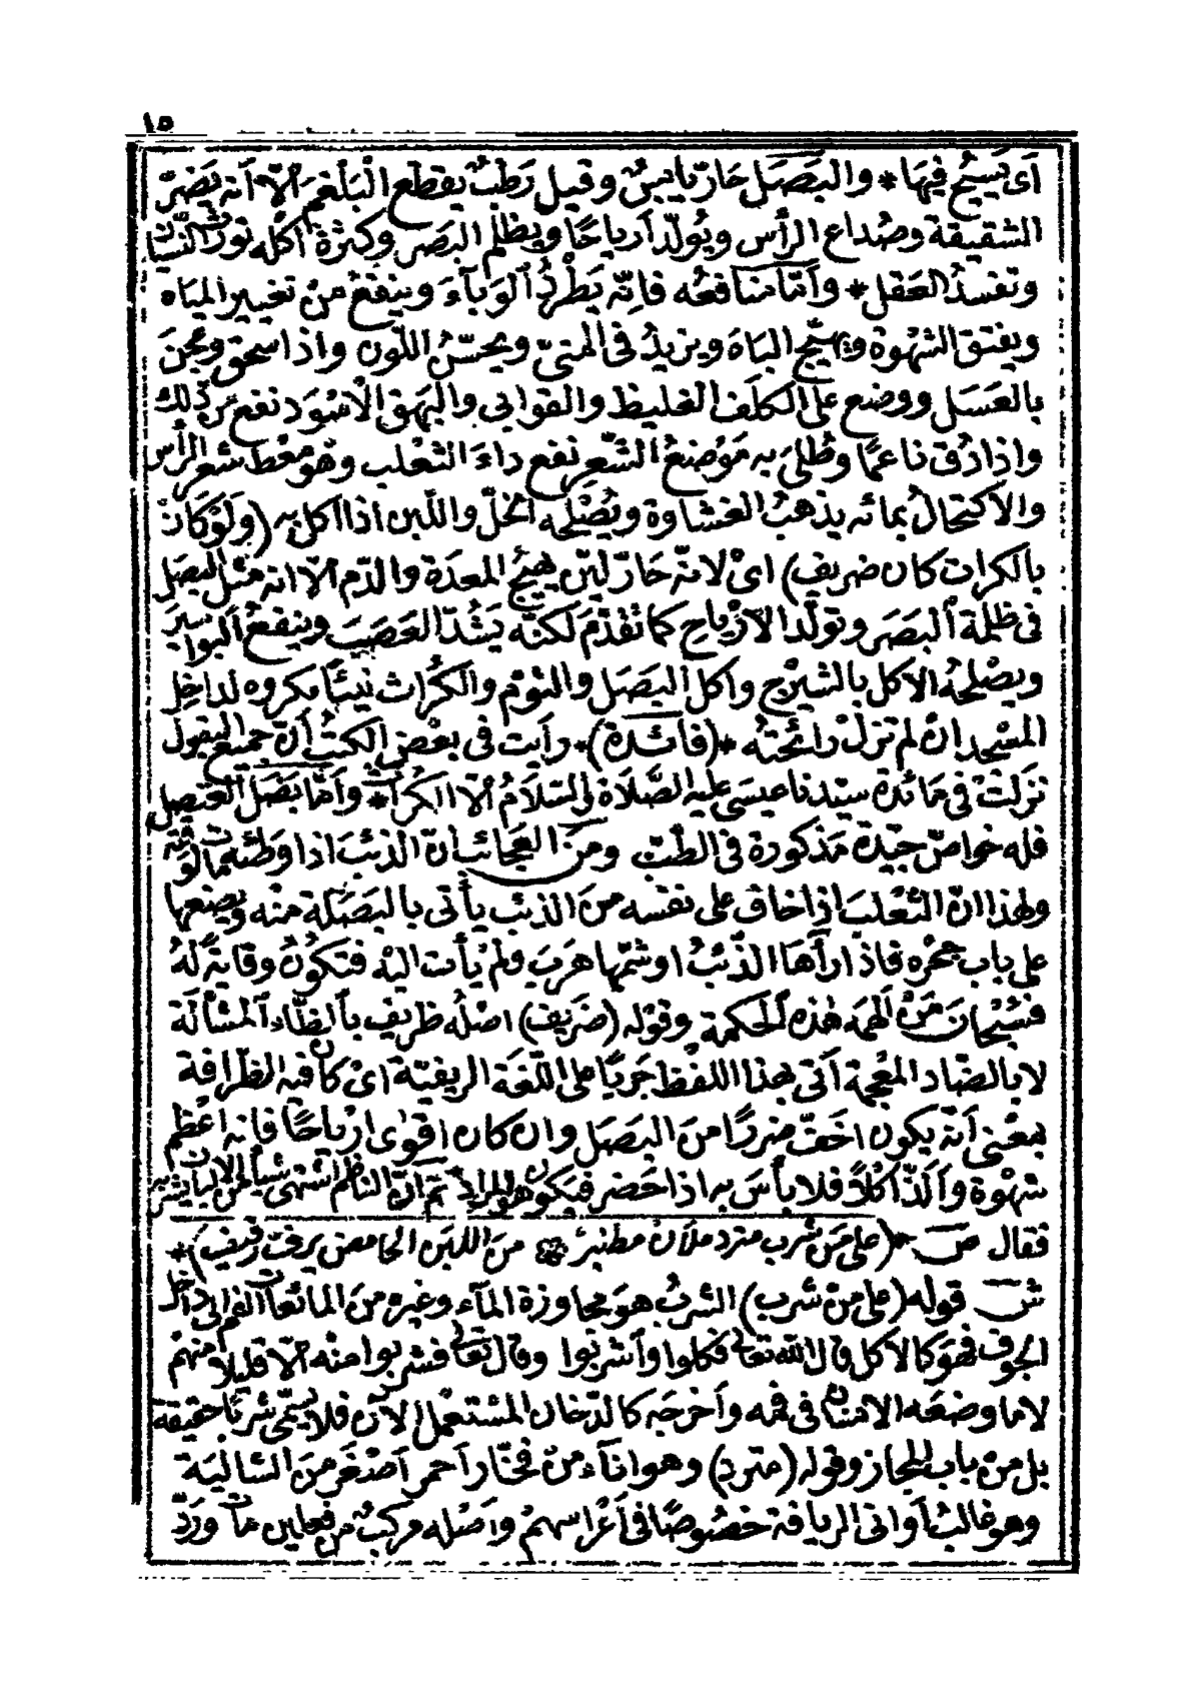 ١٥
أى يَسيحُ فيهَا * والبَصَل حَارّ يابسٌ وقيل رَطبٌ يقطع الْبَلْغم إلّا أنه يَضرّ
الشقيقة وصُداع الرأس ويُولّد أرياحًا ويُظلم البَصَر وكثرة أكله تورثُ النسيان
وتفسدُ العَقل * وأمّا منافعُه فإنّه يَطْردُ الوَبآءَ وينفعُ منْ تغيير الميَاه
ويفتق الشهْوة ويهيّج البَاهَ ويزيدُ فى المنىّ ويحسّنُ اللّون واذا سحق وعجنَ
بالعَسَل ووضع على الكلَف الغليظ والقوابى والبهَق الأسْوَد نفع منْ ذلك
واذا دُق ناعمًا وطُلىَ به مَوْضعُ الشّعر نفع داءَ الثعْلب وهو مغط شعر الرأس
والاكتحالُ بمائه يذهبُ الغشاوة ويُصْلحه الخلّ واللبن اذا أكل به (وَلَوْ كَانْ
بالكرات كان ضريف) اىْ لانّه حَارّ ليّن يهيّجُ المعدَة والدّم إلّا انه مثْل البصَل
فى ظلمة البَصَر وتولّد الأرْياح كما تقدّمَ لكنّه يَشُدّ العَصَبَ وينفعُ البواسيرَ
ويصْلحُه الاكل بالشيْرج واكل البَصَل والثوْم والكرَّاث نيئًا مكروه لداخل
المسْجد انْ لم تزلْ رائحتُه * (فائدة) * رأيت فى بعْض الكتُب أنّ جميعَ البقول
نزلتْ فى مَائدة سيّدنا عيسَى عليه الصَّلاة والسّلامُ إلّا الكرّاث * وأمّا بَصَل العنصل
فله خواصّ جيّدة مَذكورة فى الطبّ ومنَ العجَائب أنّ الذئبَ اذا وطئه مات لوقته
ولهذا انّ الثعْلبَ اذا خاف على نفسه منَ الذئب يأتى بالبصَلة منْه ويضعها
على باب جحْره فاذا رآهَا الذّئبُ او شمّها هَربَ ولمْ يأت اليْه فتكُونُ وقايةً لهُ
فسُبْحانَ مَنْ ألهمَه هذه الحكمة وقوْله (ضَريف) اصْلُه ظريف بالظّاء المشالة
لا بالضّاد المعْجمة أتى بهذا اللفْظ جَرْيًا على اللّغة الريفيّة اىْ كان فيه الظّرافة
بمعْنى أنّه يكون اخفّ ضررًا منَ البصَل وان كان اقوَى ارْياحًا فانه اعْظم
شهْوة وألذّ اكْلًا فلا بأسَ به اذا حَضر فيكون هو المرادُ ثمّ انّ الناظم اشتهى شيأ من الالبان يشربه
فقال صَـ * (على مَنْ شربْ مترد ملآنْ مطنبرْ منَ اللبَن الحامض يرفت رفيف) *
شَـ قوله (على منْ شرب) الشربُ هوَ مجاوزة المآء وغيره منَ المائعات الفم الى داخل
الجوْف فهوَ كالاكل قال الله تعالى فكلوا وأشربُوا وقال تعالى فشربوا منْه إلّا قليلًا منهمْ
لا ما وضعَه الانسَان فى فمه وأخرجَه كالدّخان المسْتعمَل الآن فلا يسمَّى شربًا حقيقة
بل منْ باب المجاز وقوله (مترد) وهوَ انآء منْ فخّار أحمر أصْغَر منَ الشاليَة
وهو غالبُ أوانى الريافة خصُوصًا فى أعْراسهمْ وأصْلُه مركبٌ من فعلين ماتَ وَرَدّ